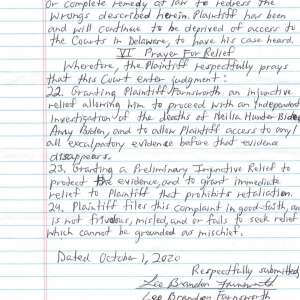 or complete remedy at law to redress the
wrongs described herein. Plaintiff has been
and will continue to be deprived of access to
the Courts in Delaware, to have his case heard.
VI Prayer For Relief
Wherefore, the Plaintiff respectfully prays
that this Court enter judgment:
22. Granting Plaintiff Farnsworth an injunctive
relief allowing him to proceed with an Independent
Investigation of the deaths of Neilia Hunter Biden
Amy Biden, and to allow Plaintiff access to any/
all exculpatory evidence before that evidence
disappears.
23. Granting a Preliminary Injunctive Relief to
protect the evidence, and to grant immediate
relief to Plaintiff that prohibits retaliation.
24. Plaintiff files this complaint in good-faith, and
is not frivolous, misled, and or fails to seek relief
which cannot be grounded as mischief.
Dated October 1, 2020
Respectfully submitted,
Lee Brandon Farnsworth
Lee Brandon Farnsworth